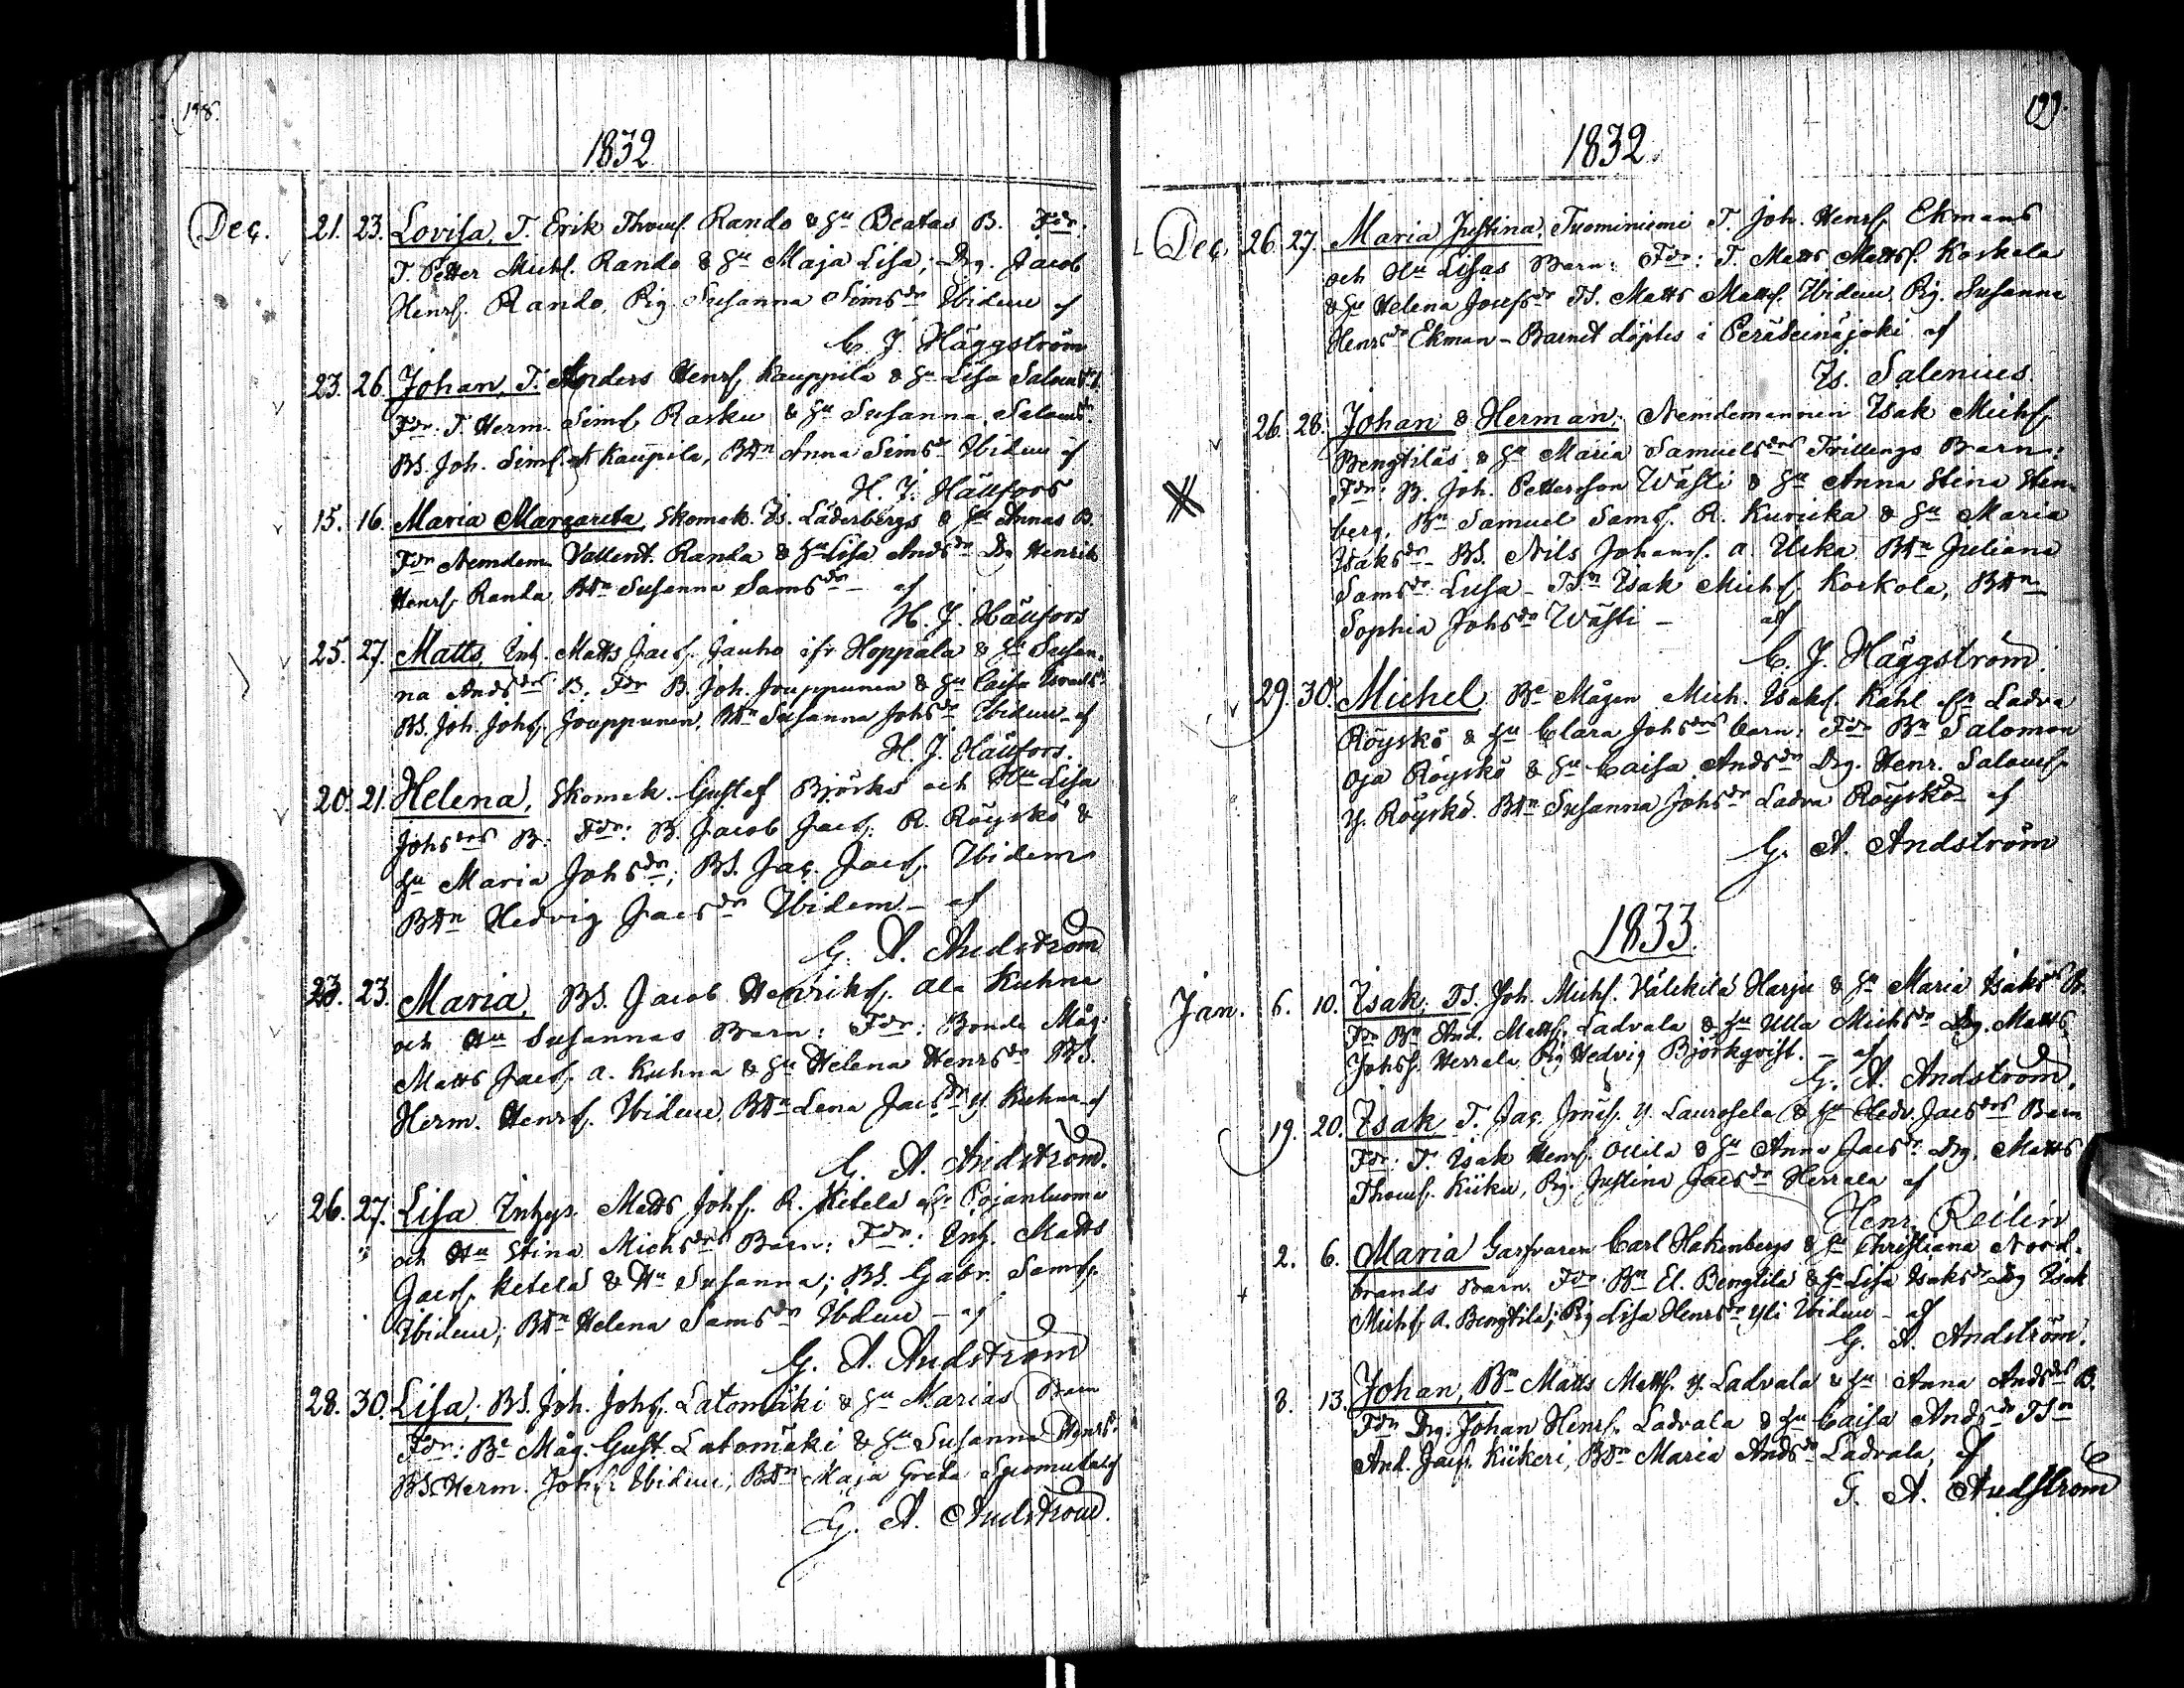 198.
1832
Dec. 21. 23. Lovisa, T. Erik Thomss. Rando & Hu Beatas B. Fdr:
T. Petter Michs. Rando & Hu Maja Lisa; Drg. Jacob
Henrs. Rando, Pig. Susanna Simsdr Ibidem af
C. J. Häggström
23. 26. Johan, T. Anders Henrs. Kauppila & Hu Lisa
Fdr. T. Herm. Sims. Rasku & Hu Susanna Salomsdr.
BS. Joh. Sims. Kauppila, BDn Anna Simsdr Ibidem af
H. J. Hällfors
15. 16. Maria Margareta, Skomak. Is. Läderbergs & Hu Annas B.
Fdr Nemdem. Vallent. Randa & Hu Lisa Andsdr Drg Henrik
Henrs. Randa, BDn Susanna Samsdr – af
H. J. Hällfors
25. 27. Matts, Inh. Matts Jacs. Jauho ifr Hoppala & Hu Susan-
na Andsdrs B. Fdr B. Joh. Jouppunen & Hu Caisa
BS. Joh. Johs. Jouppunen, BDn Susanna Johsdr Ibidem – af
H. J. Hällfors.
20. 21. Helena, Skomak. Gustaf Björks och Hu Lisa
Johsdrs B. Fdr: B. Jacob Jacs. R. Röyskö &
Hu Maria Johsdr; BS. Jac. Jacs. Ibidem
BDn Hedvig Jacsdr Ibidem – af
G. A. Andström
23. 23. Maria, BS. Jacob Henriks. ala Kuhna
och Hu Susannas Barn: Fdr: Bonde Måg:
Matts Jacs. a. Kuhna & Hu Helena Henrsdr BS.
Herm. Henrs. Ibidem, BDn Lena Jacsdr y Kuhna – af
G. A. Andström.
26. 27. Lisa Inhys. Matts Johs. R. Ketela ifr Pojanluoma
och Hu Stina Michsdrs Barn: Fdr: Inh. Matts
Jacs. Ketela & Hu Susanna; BS. Gabr. Sams.
Ibidem; BDn Helena Samsdr Ibidem – af
G. A. Andström
28. 30. Lisa, BS. Joh. Johs. Latomäki & Hu Marias Barn
Fdr: Be Måg. Gust. Latomäki & Hu Susanna Henrsdr
BS. Herm. Johs. Ibidem, BDn Maja Greta
G. A. Andström.
199.
1832.
Dec. 26. 27. Maria Justina, Tuominiemi T. Joh. Henrs. Ekmans
och Hu Lisas Barn: Fdr: T. Matts Matts. Koskela
& Hu Helena Josefsdr TS. Matts Matts. Ibidem, Pig. Susanna
Henrsdr Ekman – Barnet döptes i Peräseinäjoki af
Is. Salenius.
26. 28. Johan & Herman, Nemdemannen Isak Michs.
Bengtiläs & Hu Maria Samuelsdrs Tvillings Barn:
Fdr: B. Joh. Pettersson Wästi & Hu Anna Stina Sten-
berg, Bn Samuel Sams. R. Kurikka & Hu Maria
Isaksdr – BS. Nils Johans. a. Uska BDn Juliana
Samsdr Lusa – TSn Isak Michs. Koskola, BDn
Sophia Johsdr Wästi – af
C. J. Häggström.
29. 30. Michel Be Mågen Mich. Isaks. Kahl ifr Ladva
Röyskö & Hu Clara Johsdrs barn: Fdr Bn Salomon
Oja Röyskö & Hu Caisa Andsdr Drg. Henr. Saloms.
y. Röyskö. BDn Susanna Johsdr Ladva Röyskö – af
G. A. Andström
1833.
Jan. 6. 10. Isak, TS. Joh. Michs. Välikilä Harju & Hu Maria Isaksdrs B.
Fdr Bn And. Matts. Ladvala & Hu Ulla Michsdr Drg. Matts
Johss. Herrala, Pig Hedvig Björkqvist. – af
G. A. Andström.
19. 20. Isak T. Jac. y. Laurosela & Hu Hedv. Jacsdrs Barn
Fdr: T. Isak Henrs. Ollila & Hu Anna Jacsdr Drg. Matts
Thomss. Kiiku, Pig. Justina Jacsdr Herrala af
Henr. Reilin
2. 6. Maria Garfvaren Carl Hakenbergs & Hu Christiana Nord-
brands Barn. Fdr: Bn El. Bengtila & Hu Lisa Isaksdr Drg Isak
Michs. a. Bengtila; Pig Lisa Henrsdr Yli Ibidem – af
G. A. Andström.
8. 13. Johan, Bn Matts Matts. y. Ladvala & Hu Anna Andsdrs B.
Fdr Drg. Johan Henrs. Ladvala & Hu Caisa Andsdr TSn
And. Jacs. Kiikeri, BDn Maria Andsdr Ladvala, af
G. A. Andström